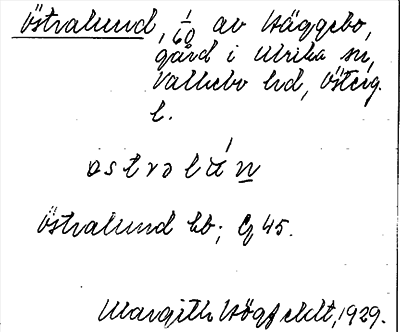 Östralund, 1/60 av Häggebo,
gård i Ulrika sn,
Vallebo hd, Österg.
l.
östralún
Östralund lb; Eg 45.
Margith Högfeldt, 1929.